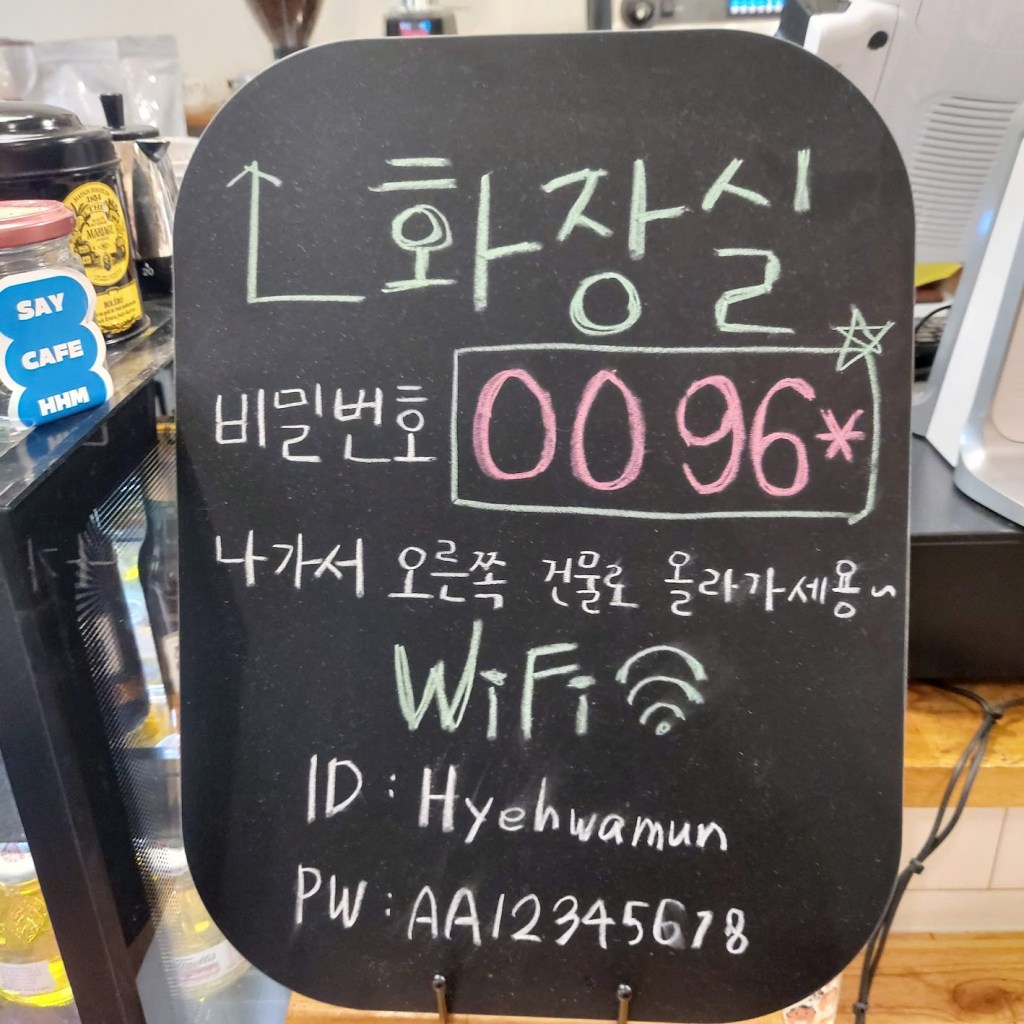 화장실
비밀번호 0096*
나가서 오른쪽 건물로 올라가세용~
WiFi
ID : Hyehwamun
PW : AA12345678
SAY
CAFE
HHM
1854
MARIAGE
BOLÉRO
20